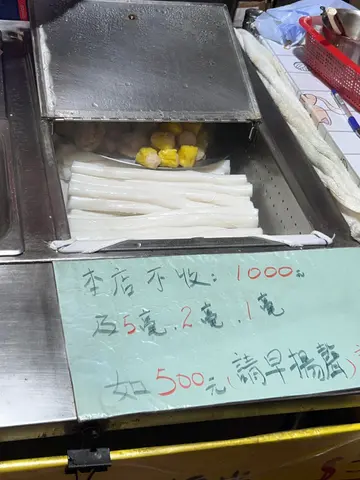 本店不收：1000元
及5毫．2毫．1毫
如500元(請早揚聲)